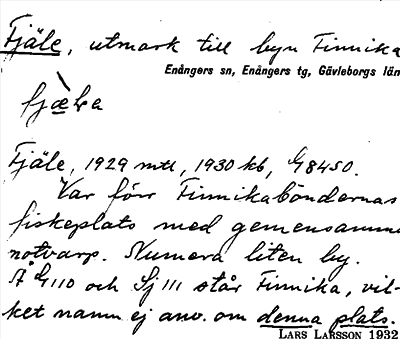 Fjäle, utmark till byn Finnika
Enångers sn, Enångers tg, Gävleborgs län
Fjäle, 1929 mtl, 1930 kb, G8450.
Var förr Finnikaböndernas
fiskeplats med gemensamma
notvarp. Numera liten by.
Å G110 och Sj 111 står Finnika, vil-
ket namn ej anv. om denna plats.
LARS LARSSON 1932